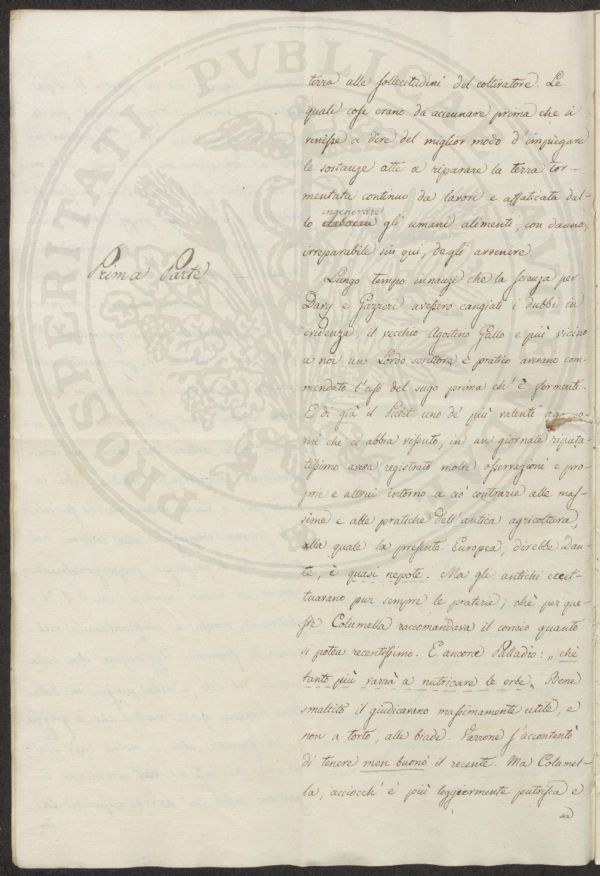 PROSPERITATI PVBLICAE
Prima Parte
terra alle sollecitudini del coltivatore. Le
quali cose erano da accennare prima che si
venisse a dire del miglior modo d'impiegare
le sostanze atte a riparare la terra tor-
mentata continuo da lavori e affaticata dal-
ingenerare
lo elaborare gli umani alimenti, con danno,
irreparabile sin qui, degli avvenire.
Lungo tempo innanzi che la scienza per
Davy e Gazzeri avessero cangiati i dubbi in
evidenza, il vecchio Agostino Gallo e più vicino
a noi un Lordo scrittore e pratico avevano com-
mendato l'uso del sugo prima ch'è fermenti.
E di già il Pictet uno de' più valenti agrono-
mi che ci abbia vessuto, in un giornale riputa-
tissimo aveva registrato molte osservazioni e pro-
prie e altrui intorno a ciò contrarie alle mas-
sime e alle pratiche dell'antica agricoltura,
alla quale la presente Europea, direbbe Dan-
te, è quasi nepote. Ma gli antichi eccet-
tuavano pur sempre le praterie; chè per que-
ste Columella raccomandava il concio quanto
si potea recentissimo. E ancora Palladio: „ chè
tanto più varrà a nutricare le erbe„ Bene
smaltito il giudicavano massimamente utile, e
non a torto, alle biade. Varrone s'accontentò
di tenere men buono il recente. Ma Columel-
la, acciocch' è più leggiermente putrisca e